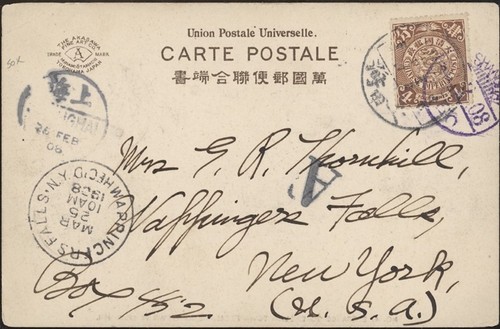 Union Postale Universelle.
CARTE POSTALE
書端合聯便郵國萬
THE AKASAWA
FINE ART CO.
TRADE A MARK
YOKOHAMA JAPAN
26 FEB
08
WAPPINGERS FALLS. N.Y. REC'D
MAR
25
10AM
1908
A
Mrs G. R. Thornhill,
Wappingers Falls,
New York,
Box 412. (U. S. A.)